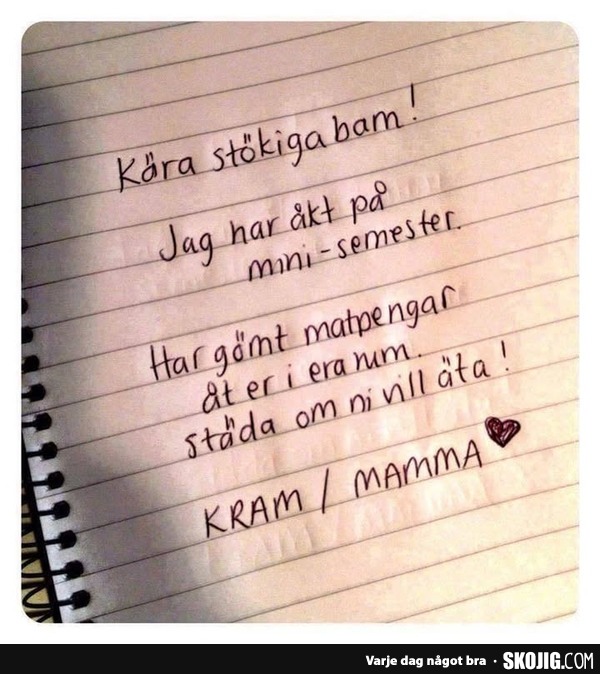 Kära stökiga barn!
Jag har åkt på
mini-semester.
Har gömt matpengar
åt er i era rum.
städa om ni vill äta!
KRAM / MAMMA
Varje dag något bra · SKOJIG.COM